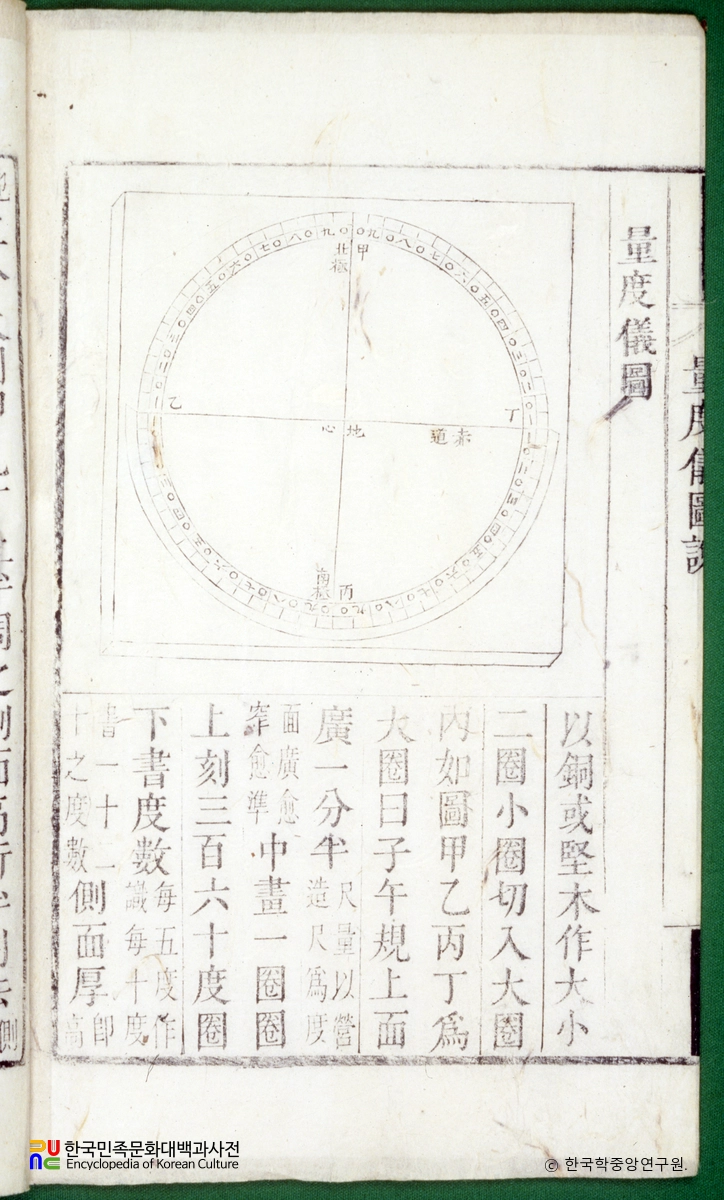 量度儀圖說
量度儀圖
甲
北極
乙
丁
地心
赤道
丙
南極
以銅或堅木作大小
二圈小圈切入大圈
內如圖甲乙丙丁爲
大圈曰子午規上面
廣一分半尺量以營造尺爲度
面廣愈窄愈準中畫一圈圈
上刻三百六十度圈
下書度數每五度作識每十度
書一十二十之度數側面厚卽高
한국민족문화대백과사전
Encyclopedia of Korean Culture
© 한국학중앙연구원.